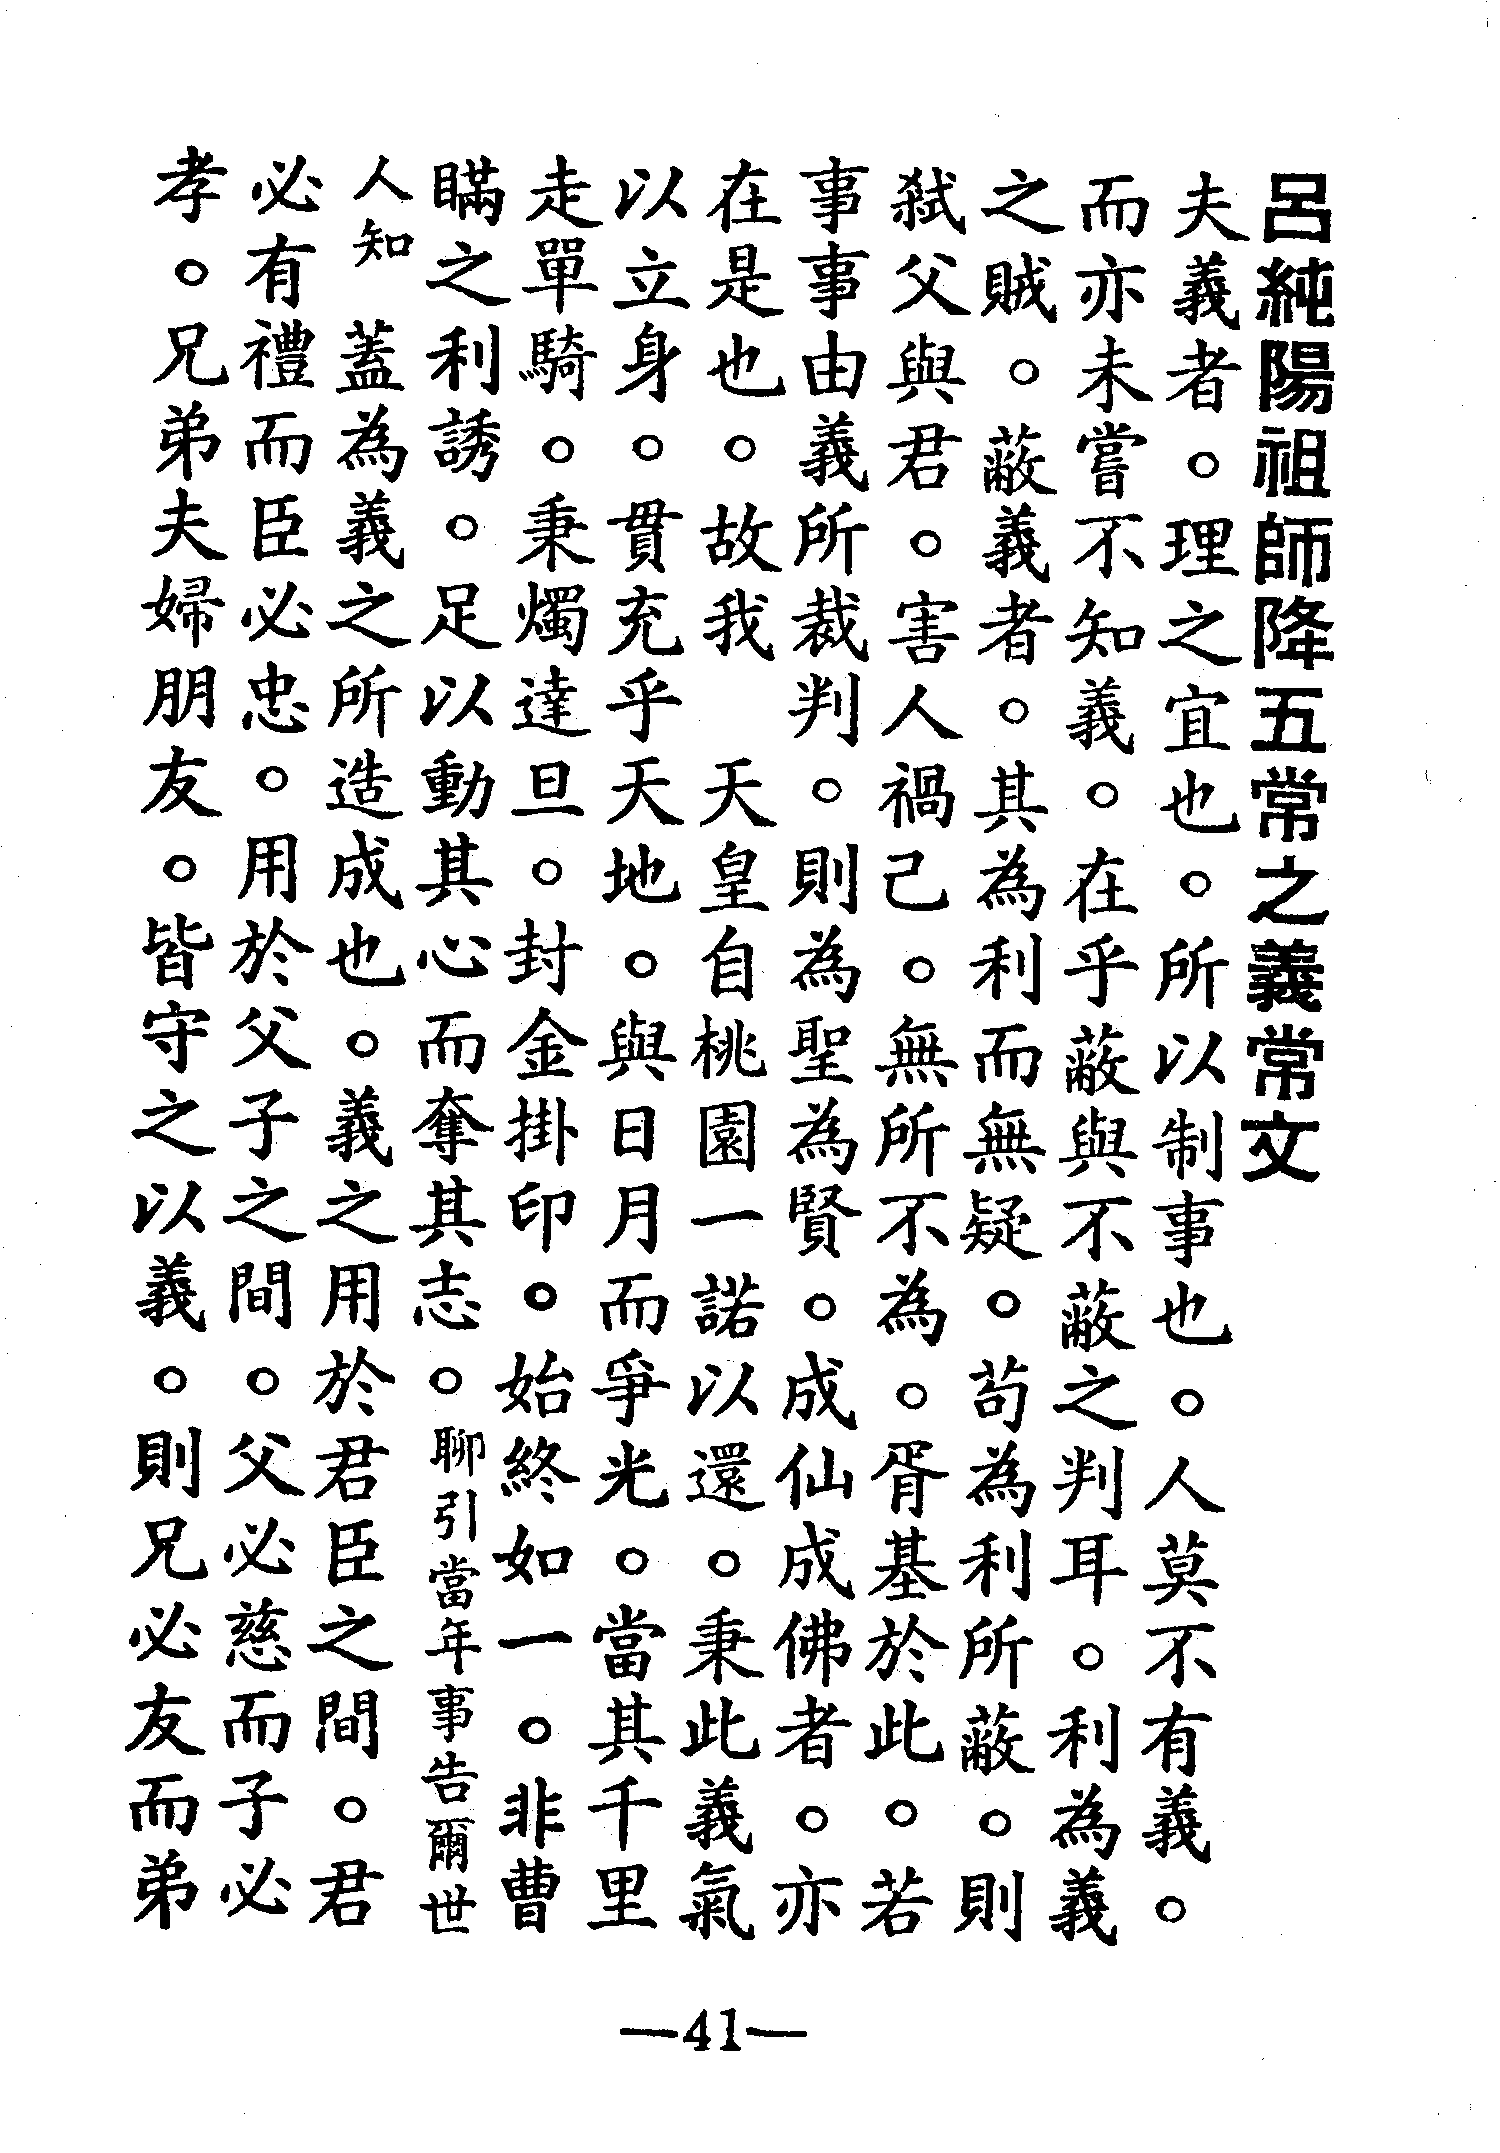 呂純陽祖師降五常之義常文
夫義者。理之宜也。所以制事也。人莫不有義。
而亦未嘗不知義。在乎蔽與不蔽之判耳。利為義
之賊。蔽義者。其為利而無疑。苟為利所蔽。則
弒父與君。害人禍己。無所不為。胥基於此。若
事事由義所裁判。則為聖為賢。成仙成佛者。亦
在是也。故我　天皇自桃園一諾以還。秉此義氣
以立身。貫充乎天地。與日月而爭光。當其千里
走單騎。秉燭達旦。封金掛印。始終如一。非曹
瞞之利誘。足以動其心而奪其志。聊引當年事告爾世
人知　蓋為義之所造成也。義之用於君臣之間。君
必有禮而臣必忠。用於父子之間。父必慈而子必
孝。兄弟夫婦朋友。皆守之以義。則兄必友而弟
—41—